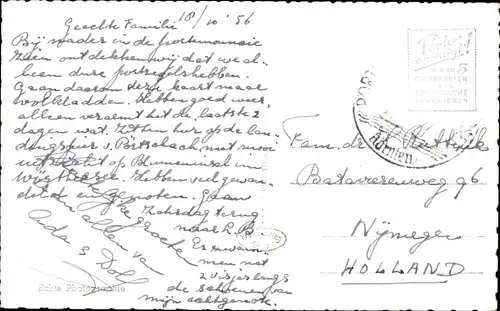 18/10 '56
Geachte Familie
Bij nader in de portemonnaie
zien ontdekken wij dat we al-
leen dure postzegels hebben.
Gaan daarom deze kaart maar
volkladden. Hebben goed weer,
alleen verarmt het de laatste 2
dagen wat. Zitten hier op de lan-
dingspier v. Pörtschach, met mooi
uitzicht op Blumeninsel in
Wörthersee. Hebben veel gewan-
deld en genoten. Gaan
Zaterdag terug
naar
Er zwem-
men net
2 visjes langs
de schoenen van
mijn echtgenote.
Hartelijke groeten
allen van
Ada & Dolf
Echte Photographie
Fam. dr.
Batavierenweg 96
Nijmegen
HOLLAND
Kärnten